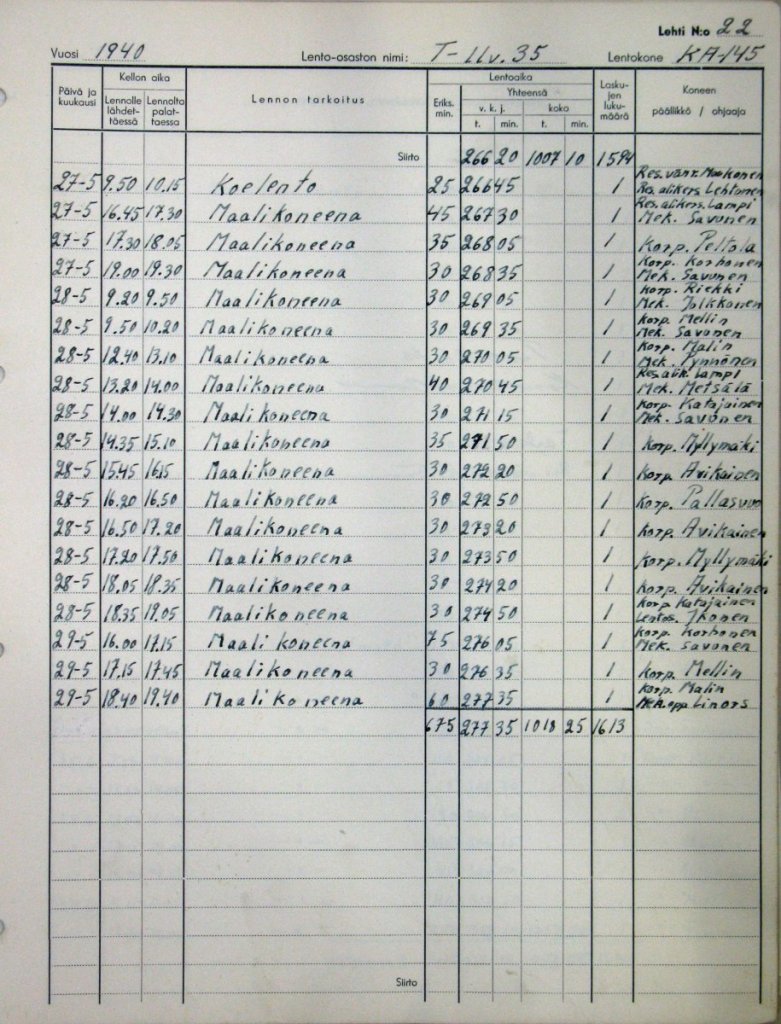 Lehti N:o 22
Vuosi 1940 Lento-osaston nimi: T-LLv.35 Lentokone KA-145
Päivä ja kuukausi Kellon aika Lennon tarkoitus Lentoaika Lasku- jen luku- määrä Koneen päällikkö / ohjaaja
Lennolle lähdet- täessä Lennolta palat- taessa Eriks. min. Yhteensä
v. k. j. koko
t. min. t. min.
Siirto 266 20 1007 10 1594
27-5 9.50 10.15 Koelento 25 266 45 1 Res.vänr. Moakonen Res. alikers. Lehtonen
27-5 16.45 17.30 Maalikoneena 45 267 30 1 Res. alikers. Lampi Mek. Savonen
27-5 17.30 18.05 Maalikoneena 35 268 05 1 Korp. Peltola
27-5 19.00 19.30 Maalikoneena 30 268 35 1 Korp. Korhonen Mek. Savonen
28-5 9.20 9.50 Maalikoneena 30 269 05 1 Korp. Riekki Mek. Jolkkonen
28-5 9.50 10.20 Maalikoneena 30 269 35 1 Korp. Mellin Mek. Savonen
28-5 12.40 13.10 Maalikoneena 30 270 05 1 Korp. Malin Mek. Tynnönen
28-5 13.20 14.00 Maalikoneena 40 270 45 1 Res.alik. Lampi Mek. Metsälä
28-5 14.00 14.30 Maalikoneena 30 271 15 1 Korp. Katajainen Mek. Savonen
28-5 14.35 15.10 Maalikoneena 35 271 50 1 Korp. Myllymäki
28-5 15.45 16.15 Maalikoneena 30 272 20 1 Korp. Avikainen
28-5 16.20 16.50 Maalikoneena 30 272 50 1 Korp. Pallasvuo
28-5 16.50 17.20 Maalikoneena 30 273 20 1 Korp. Avikainen
28-5 17.20 17.50 Maalikoneena 30 273 50 1 Korp. Myllymäki
28-5 18.05 18.35 Maalikoneena 30 274 20 1 Korp. Avikainen
28-5 18.35 19.05 Maalikoneena 30 274 50 1 Korp. Katajainen Lentos. Ikonen
29-5 16.00 17.15 Maalikoneena 75 276 05 1 Korp. Korhonen Mek. Savonen
29-5 17.15 17.45 Maalikoneena 30 276 35 1 Korp. Mellin
29-5 18.40 19.40 Maalikoneena 60 277 35 1 Korp. Malin Mek.opp. Linors
675 277 35 1018 25 1613
Siirto